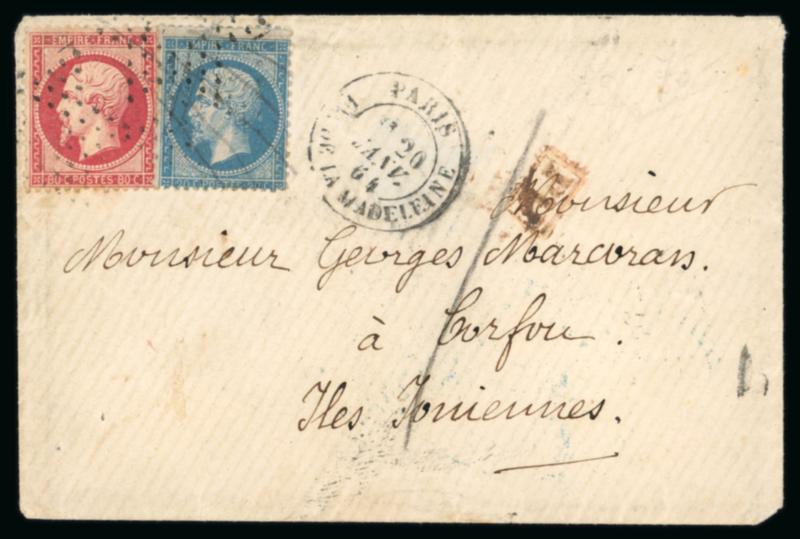 EMPIRE FRANC
EMPIRE FRANC
80 C POSTES 80 C
20 C POSTES 20 C
PARIS
20
JANV.
64
LA MADELEINE
Monsieur
Monsieur Georges Marcoran.
à Corfou.
Iles Ioniennes.